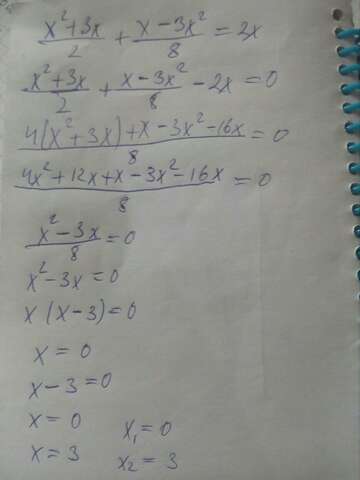 x²+3x/2 + x-3x²/8 = 2x
x²+3x/2 + x-3x²/8 - 2x = 0
4(x²+3x)+x-3x²-16x/8 = 0
4x²+12x+x-3x²-16x/8 = 0
x²-3x/8 = 0
x²-3x=0
x(x-3)=0
x=0
x-3=0
x=0
x=3
x₁=0
x₂=3